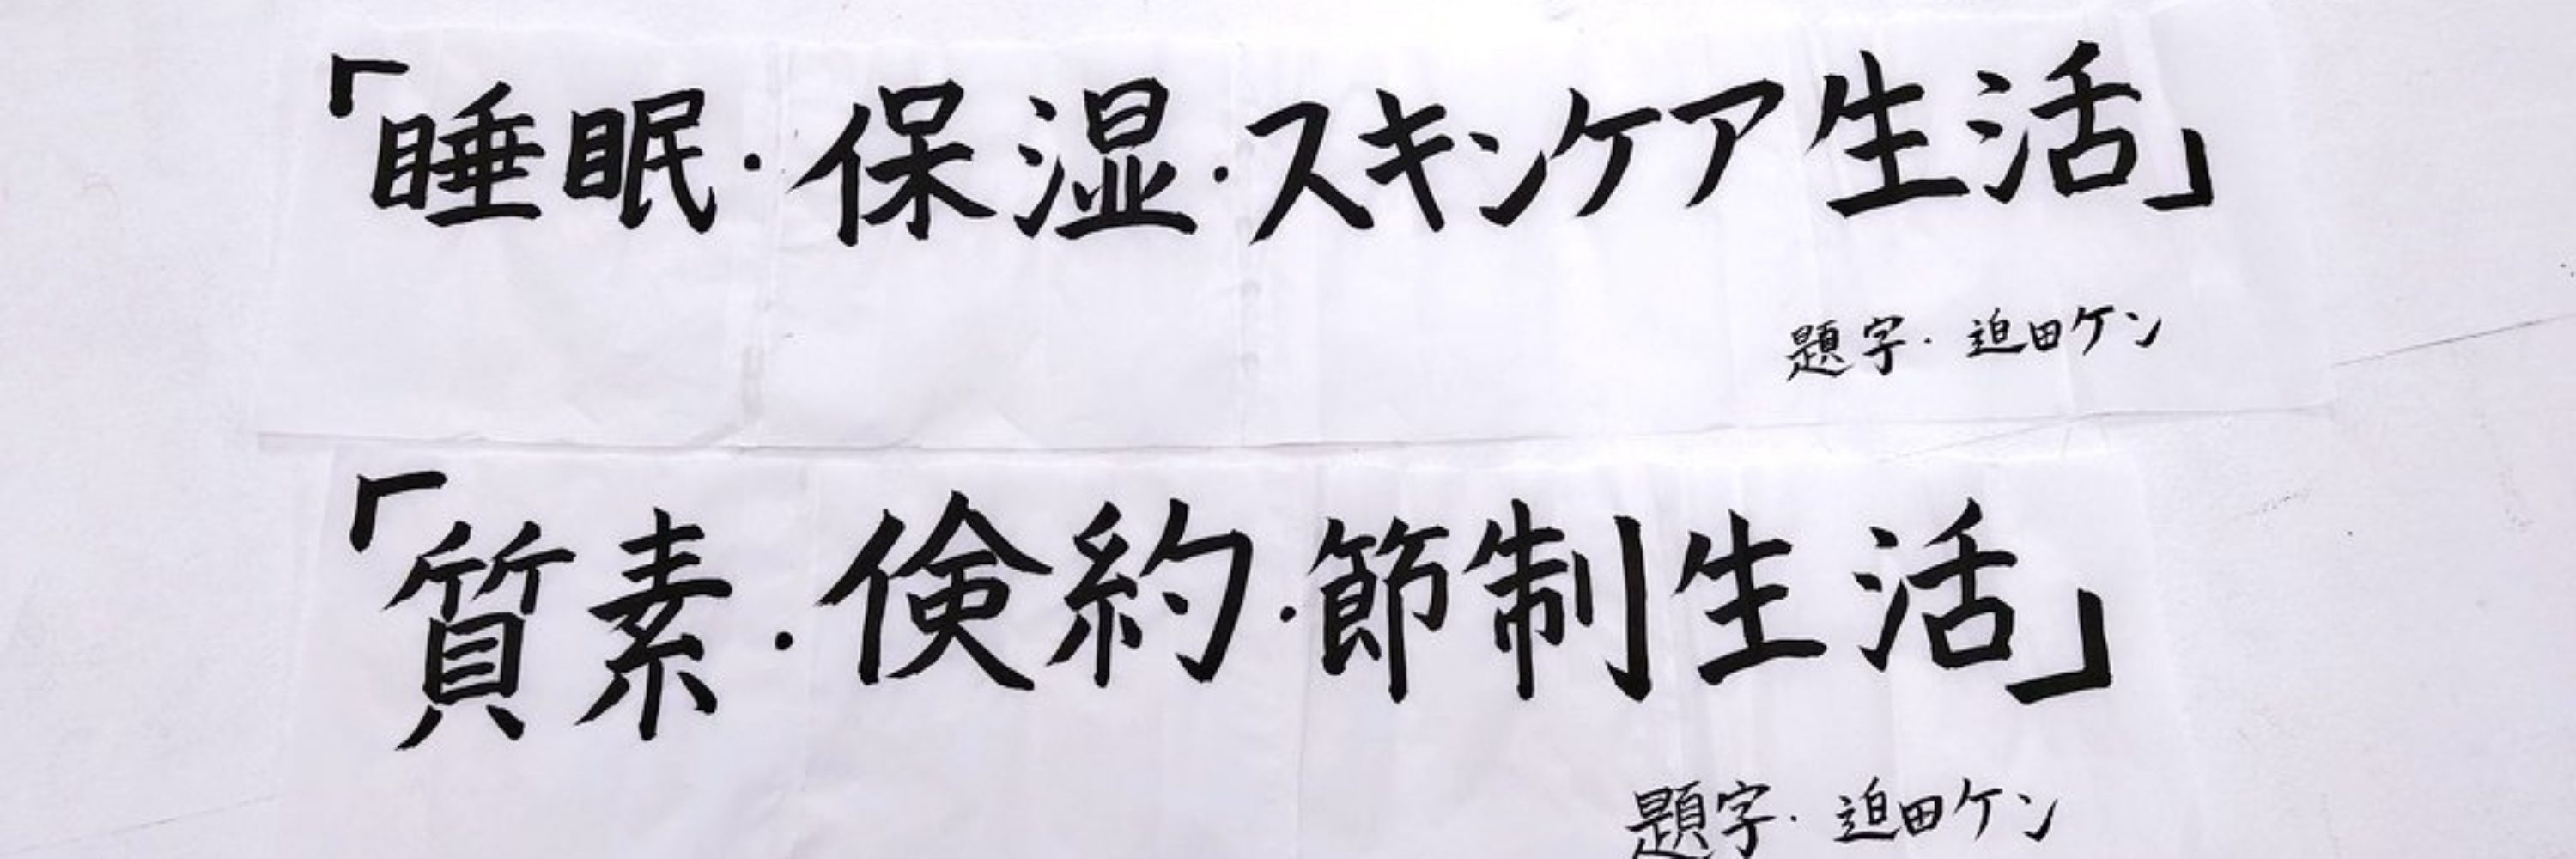 「睡眠・保湿・スキンケア生活」
題字・迫田ケン
「質素・倹約・節制生活」
題字・迫田ケン